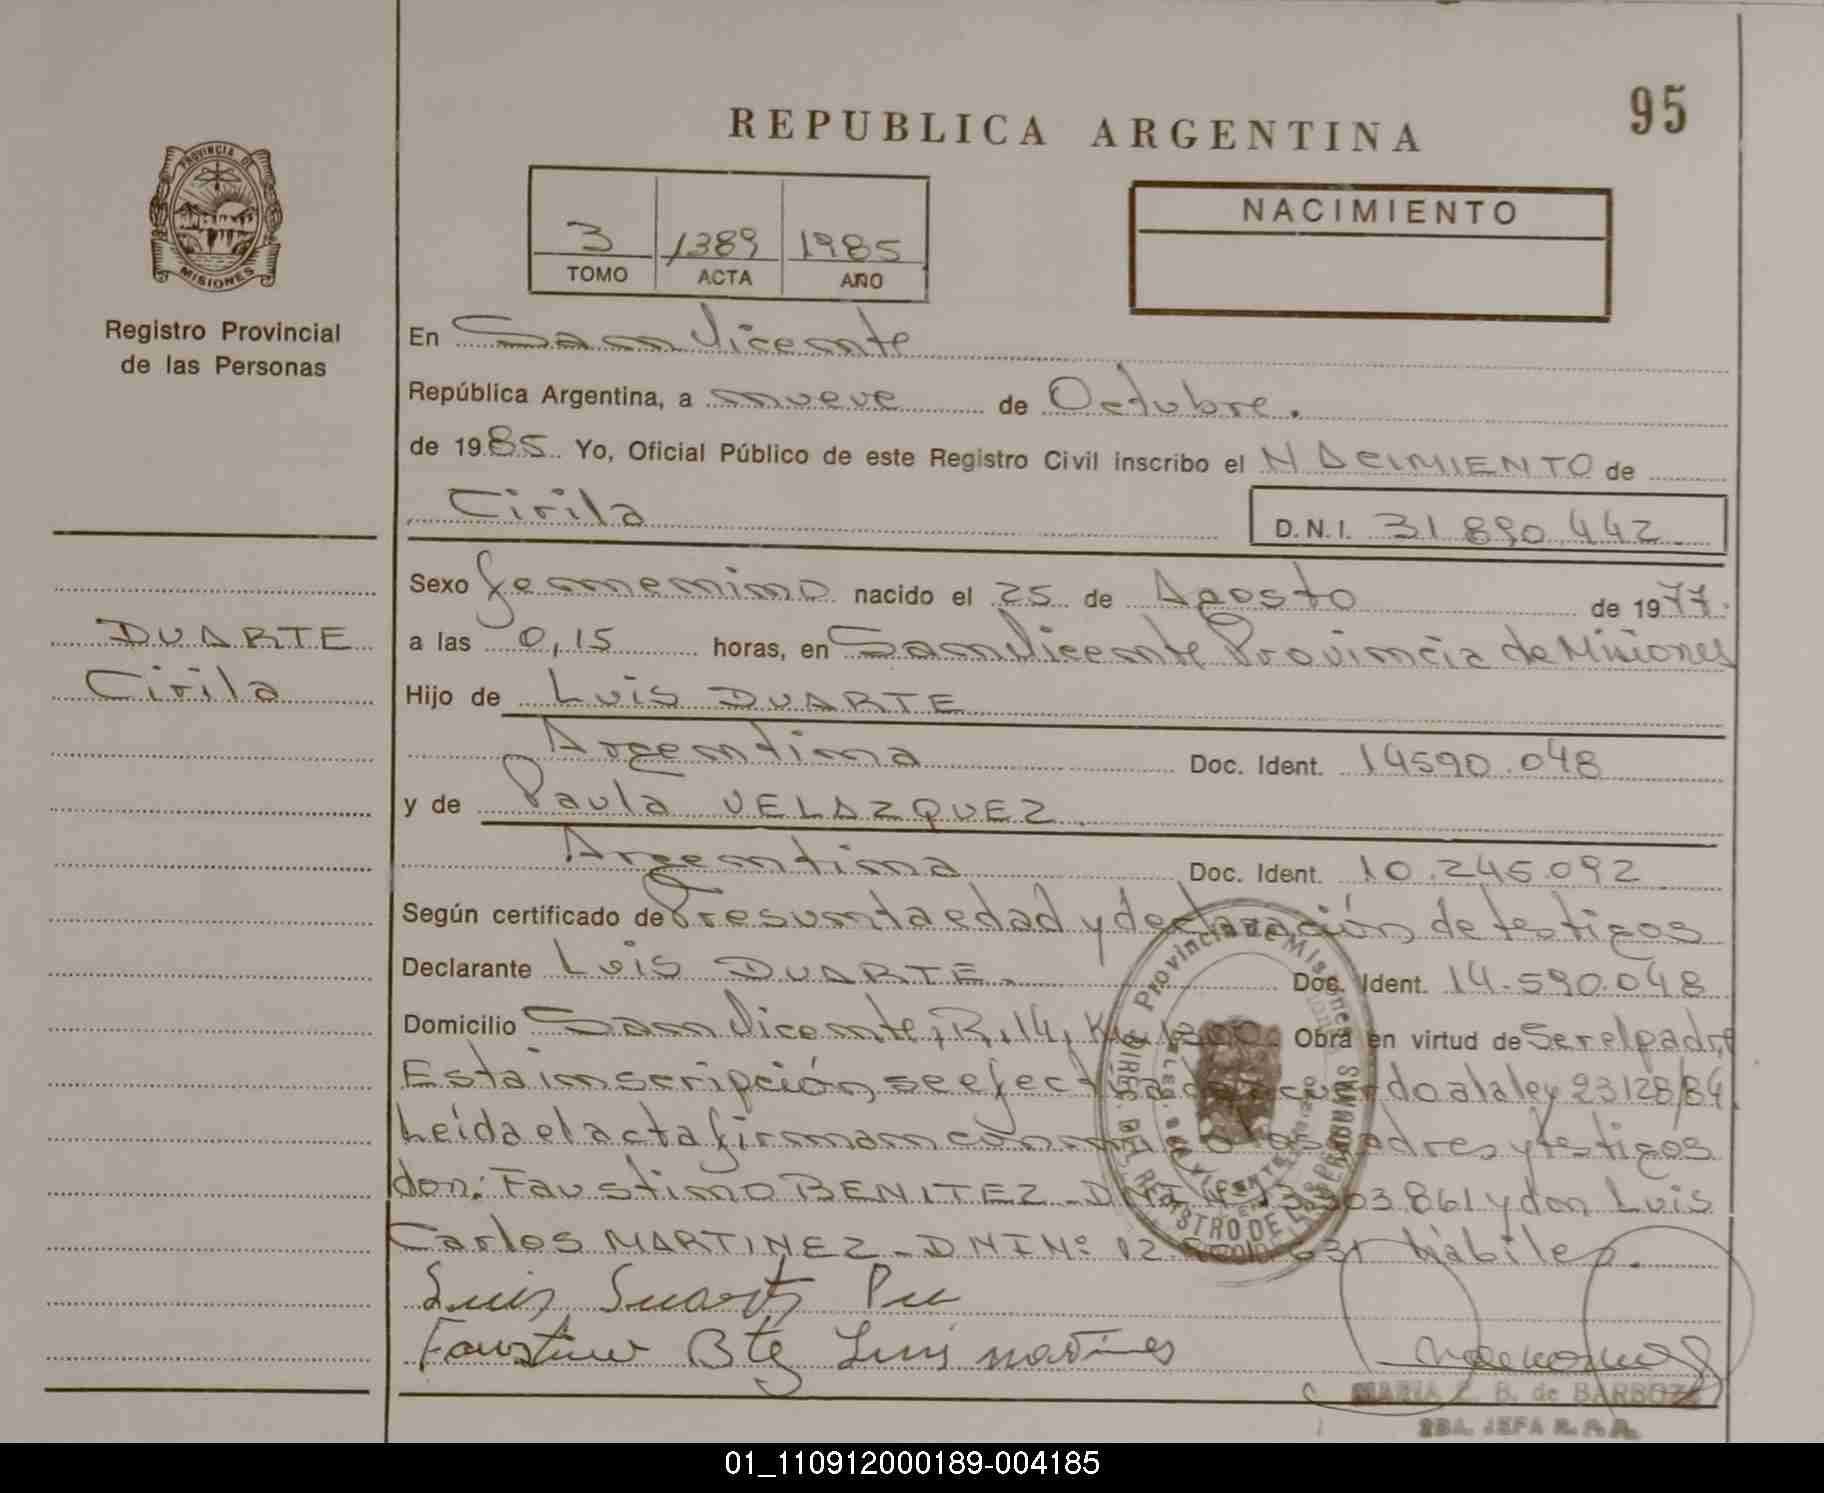 95
REPUBLICA ARGENTINA
PROVINCIA DE
MISIONES
Registro Provincial
de las Personas
3 1389 1985
TOMO ACTA AÑO
NACIMIENTO
En San Vicente
República Argentina, a nueve de Octubre.
de 1985. Yo, Oficial Público de este Registro Civil inscribo el NACIMIENTO de
Cirila
D.N.I. 31.890.442
DUARTE
Cirila
Sexo femenino nacido el 25 de Agosto de 1977.
a las 0,15 horas, en San Vicente Provincia de Misiones
Hijo de Luis DUARTE
Argentina Doc. Ident. 14590.048
y de Paula VELAZQUEZ.
Argentina Doc. Ident. 10.245.092
Según certificado de Presunta edad y declaración de testigos
Declarante Luis DUARTE. Doc. Ident. 14.590.048
Domicilio San Vicente, R. 14, Km Obra en virtud de Ser el padre
Esta inscripción, se efectua de acuerdo a la ley 23128/84.
Leída el acta firman los padres y testigos
don: Faustino BENITEZ - DNI 861 y don Luis
Carlos MARTINEZ - DNI Nº 12. 631 hábiles.
Luis Duarte
Faustino Btez Luis Martines
Provincia de Misiones
MARIA B. de BARBOZA
JEFA R.P.P.
01_110912000189-004185